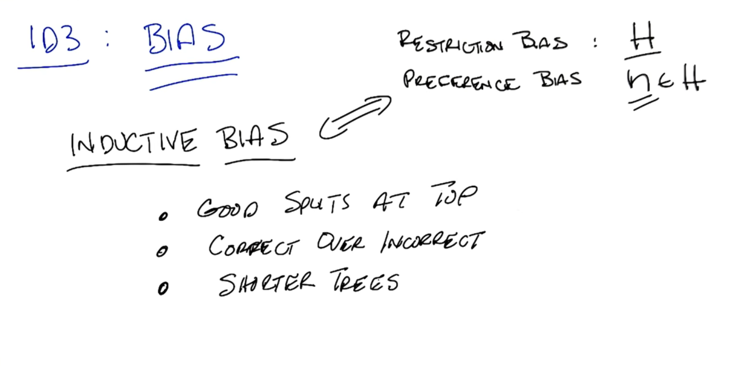 ID3 : BIAS
RESTRICTION BIAS : H
PREFERENCE BIAS h ∈ H
INDUCTIVE BIAS
• GOOD SPLITS AT TOP
• CORRECT OVER INCORRECT
• SHORTER TREES